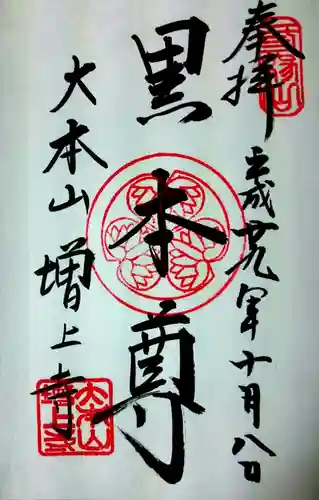 奉拝
平成廿九年十月八日
黒本尊
大本山増上寺